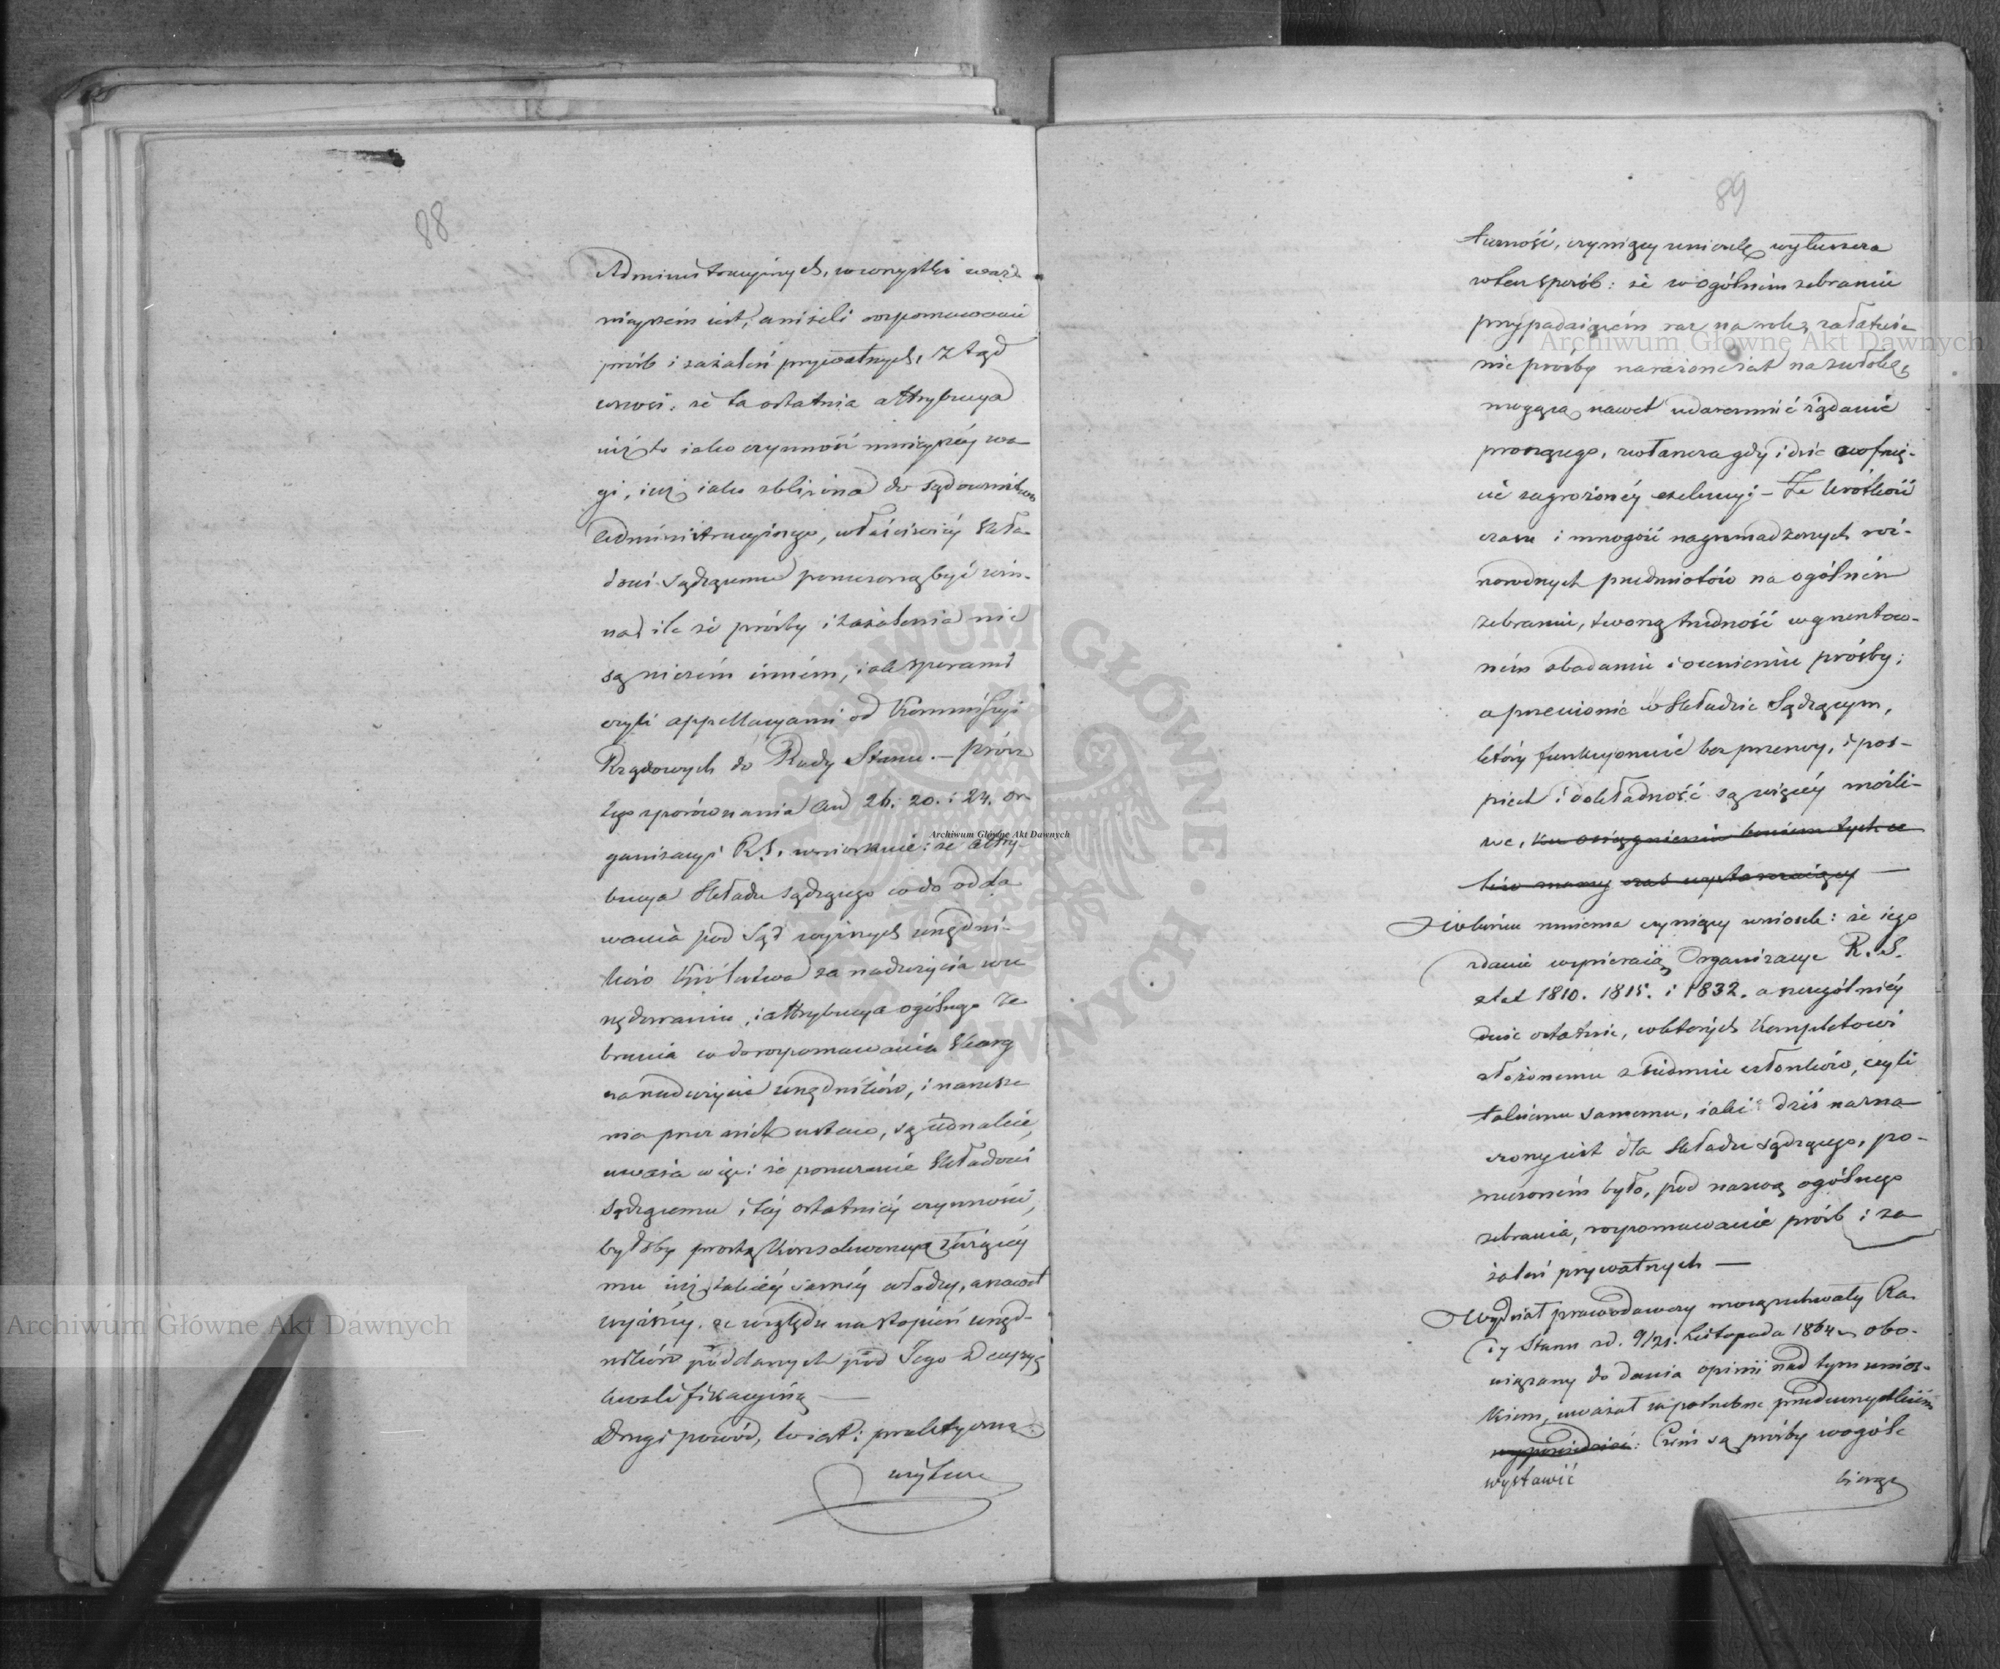 88
Administracyjnych, w wszystko waż-
niejszém iest, aniżeli rozpoznawanie
prób i zażaleń prywatnych, Ztąd
wnosi, że ta ostatnia attrybucya
iuż to iako czynność mniejszéj wa-
gi, iuż iako zbliżona do sądownictwa
Administracyinego, właściwiéj Skła-
dowi Sądzącemu poruczoną być win-
na, ile że prośby i zażalenia nie
są niczém inném, iak sporami
czyli appellacyami od Kommissyi
Rządowych do Rady Stanu. — Prócz
tego z porównania Art 26. 20. i 24. Or-
ganizacyi R. S. wnioskuie: że attry-
bucya Składu Sądzącego co do odda-
wania pod Sąd wyższych urzędni-
ków Królestwa za nadużycia w u-
rzędowaniu, i attrybucya ogólnego Ze-
brania co do rozpoznawania Skarg
na nadużycia urzędników, i narusze-
nia przez nich ustaw, są iednakie,
uważa więc: że poruczenie Składowi
Sądzącemu i téj ostatniéj czynności,
byłoby prostą konsekwencyą służącéj
mu iuż takiéj saméj władzy, a nawet
wyższéj, ze względu na stopień urzęd-
ników poddanych pod Jego Decyzyą
kwalifikacyiną —
Drugi powód, kwiat: praktyczna
wytłu-
89
turność, czyniący wniosek, wytłuszcza
w ten sposób: że w ogólném zebraniu
przypadaiącém raz na rok, załatwie-
nie prośby narażone iest na zwłokę,
mogącą nawet udaremnić żądanie
proszącego, zwłaszcza gdy idzie o cofnię-
cie zagrożonéj exekucyi — Że krótkość
czasu i mnogość nagromadzonych róż-
norodnych przedmiotów na ogólném
zebraniu, tworzą trudność w gruntow-
ném zbadaniu i ocenieniu prośby;
a przeciwnie w Składzie Sądzącym,
który funkcyonuie bez przerwy, i pos-
piech i dokładność są więcéj możli-
we, ku osiągnieniu bowiem tych ce-
lów mamy czas wystarczaiący —
Nakoniec mniema czyniący wniosek: że iego
zdanie wspieraią Organizacye R. S.
z lat 1810. 1815. i 1832. a szczególniéj
dwie ostatnie, w których Kompletowi
złożonemu z siedmiu członków, czyli
takiemu samemu, iaki dziś nazna-
czony iest dla Składu Sądzącego, po-
ruczoném było, pod nazwą ogólnego
zebrania, rozpoznawanie prób i za-
żaleń prywatnych —
Wydział prawodawczy mocą uchwały Ra-
dy Stanu z d. 9/21. Listopada 1864 r. obo-
wiązany do dania opinii nad tym wnios-
kiem, uważał za potrzebne przedewszystkiém
wypowiedzieć: Czém są prośby w ogóle
wystawić biorąc